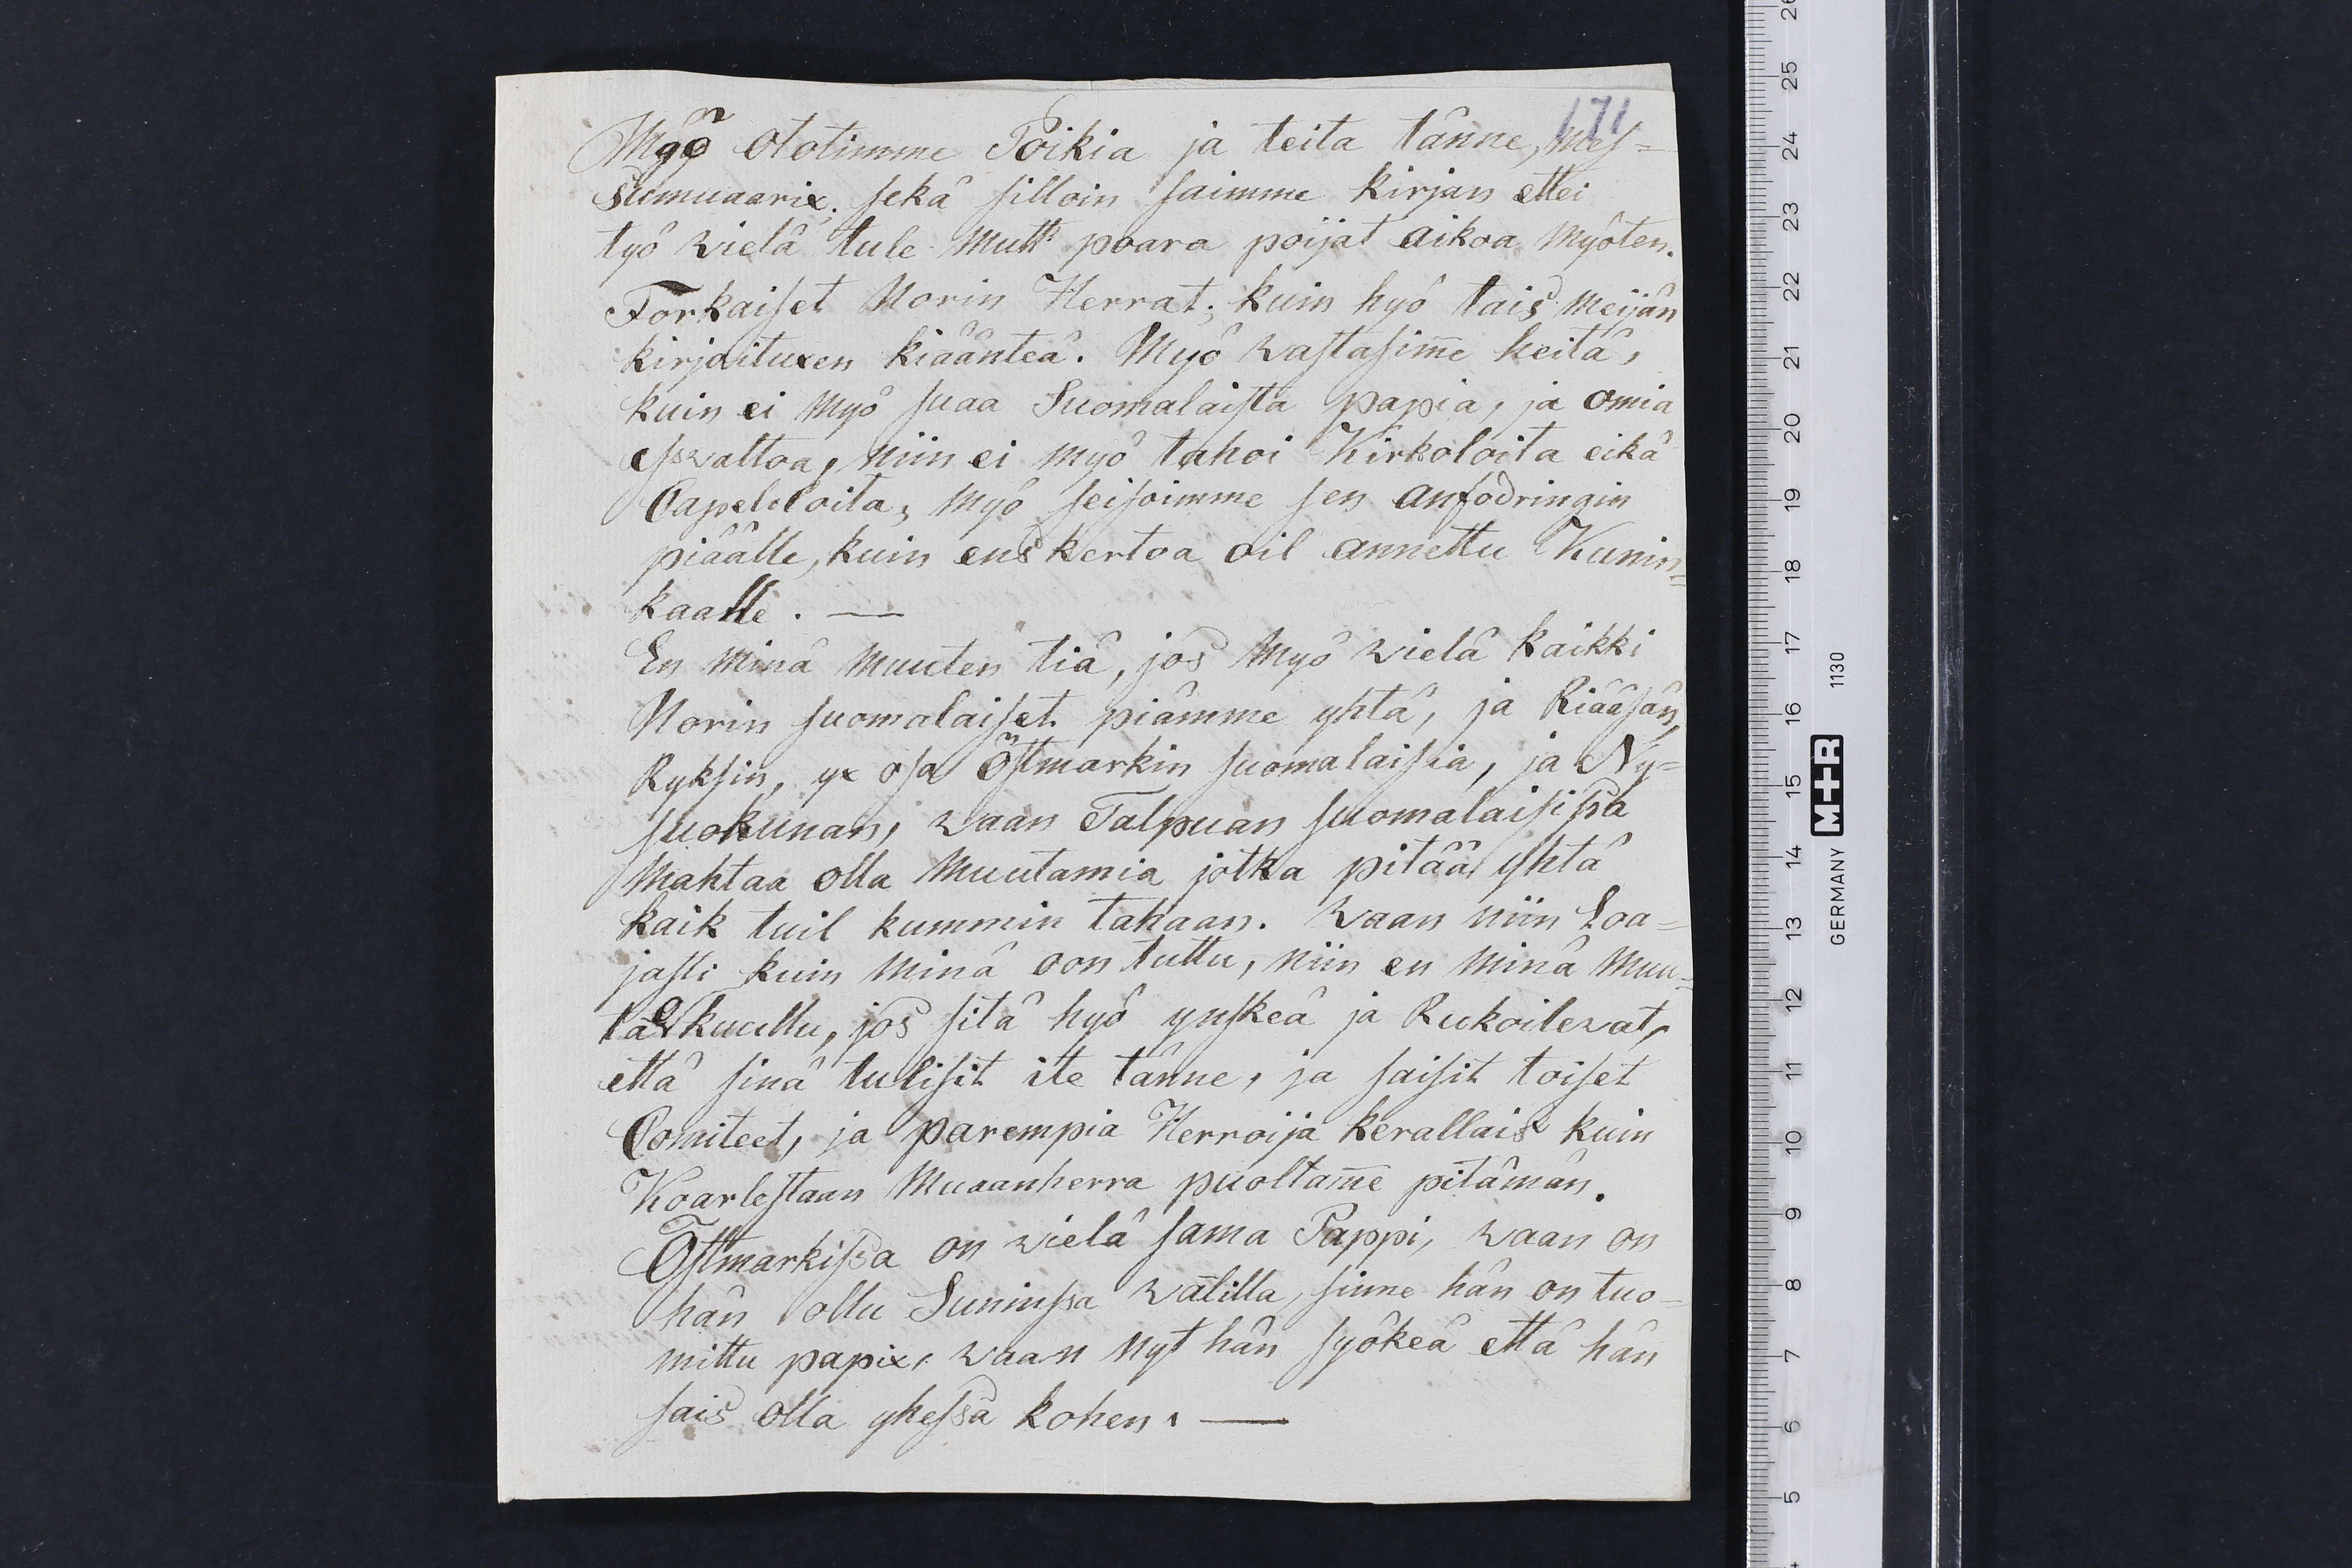 171
Myö ototimme Poikia ja teita tänne, mes=
sumuaarix. sekä silloin saimme kirjan ettei
työ wielä tule mutt poara poijat aikoa myöten.
Torkaiset Norin Herrat; kuin hyö tais meijän
kirjoituxen kiäänteä. Myö wastasim̅e heitä,
kuin ei myö suaa Suomalaista papia, ja omia
esswaltoa, niin ei myö tahoi Kirkoloita eikä
Capeleloita, myö seisoimme sen anfodringin
piäälle, kuin ens kertoa oil annettu Kunin=
kaalle. —
En minä muuten tiä, jos myö wielä kaikki
Norin suomalaiset piämme yhtä, ja Riääsän,
Ryksin, yx osa Östmarkin suomalaisia, ja Ny=
suokunan, waan Talpuan suomalaisissa
mahtaa olla muutamia jotka pitää yhtä
kaik tuil kummin tahaan. waan niin Loa=
jasti kuin minä oon tuttu, niin en minä muu=
ta kuullu, jos sitä hyö ynskeä ja Rukoilewat,
että sinä tulisit ite tänne, ja saisit toiset
Comiteet, ja parempia Herroija kerallais kuin
Koarlestaan Muaanherra puoltam̅e pitämän.
Östmarkissa on wielä sama Pappi, waan on
hän ollu Suninssa wälillä, sinne hän on tuo=
mittu papix, waan nyt hän syökeä että hän
sais olla yhessä kohen. —
M+R
GERMANY 1130
5
6
7
8
9
10
11
12
13
14
15
16
17
18
19
20
21
22
23
24
25
26